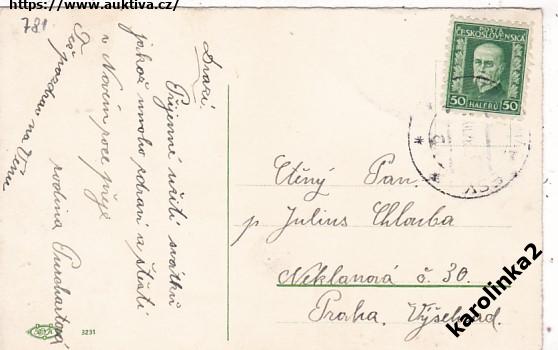 https://www.auktiva.cz/
781
POSTA
ČESKOSLOVENSKÁ
50 HALÉŘŮ 50
Drazí
Příjemné užití svátků
jakož mnoho zdraví a štěstí
v Novém roce přeje
rodina
Též pozdrav na
Ctěný Pan.
p Julius Chlouba
Neklanová č. 30.
Praha. Výšehrad.
3231
karolinka2